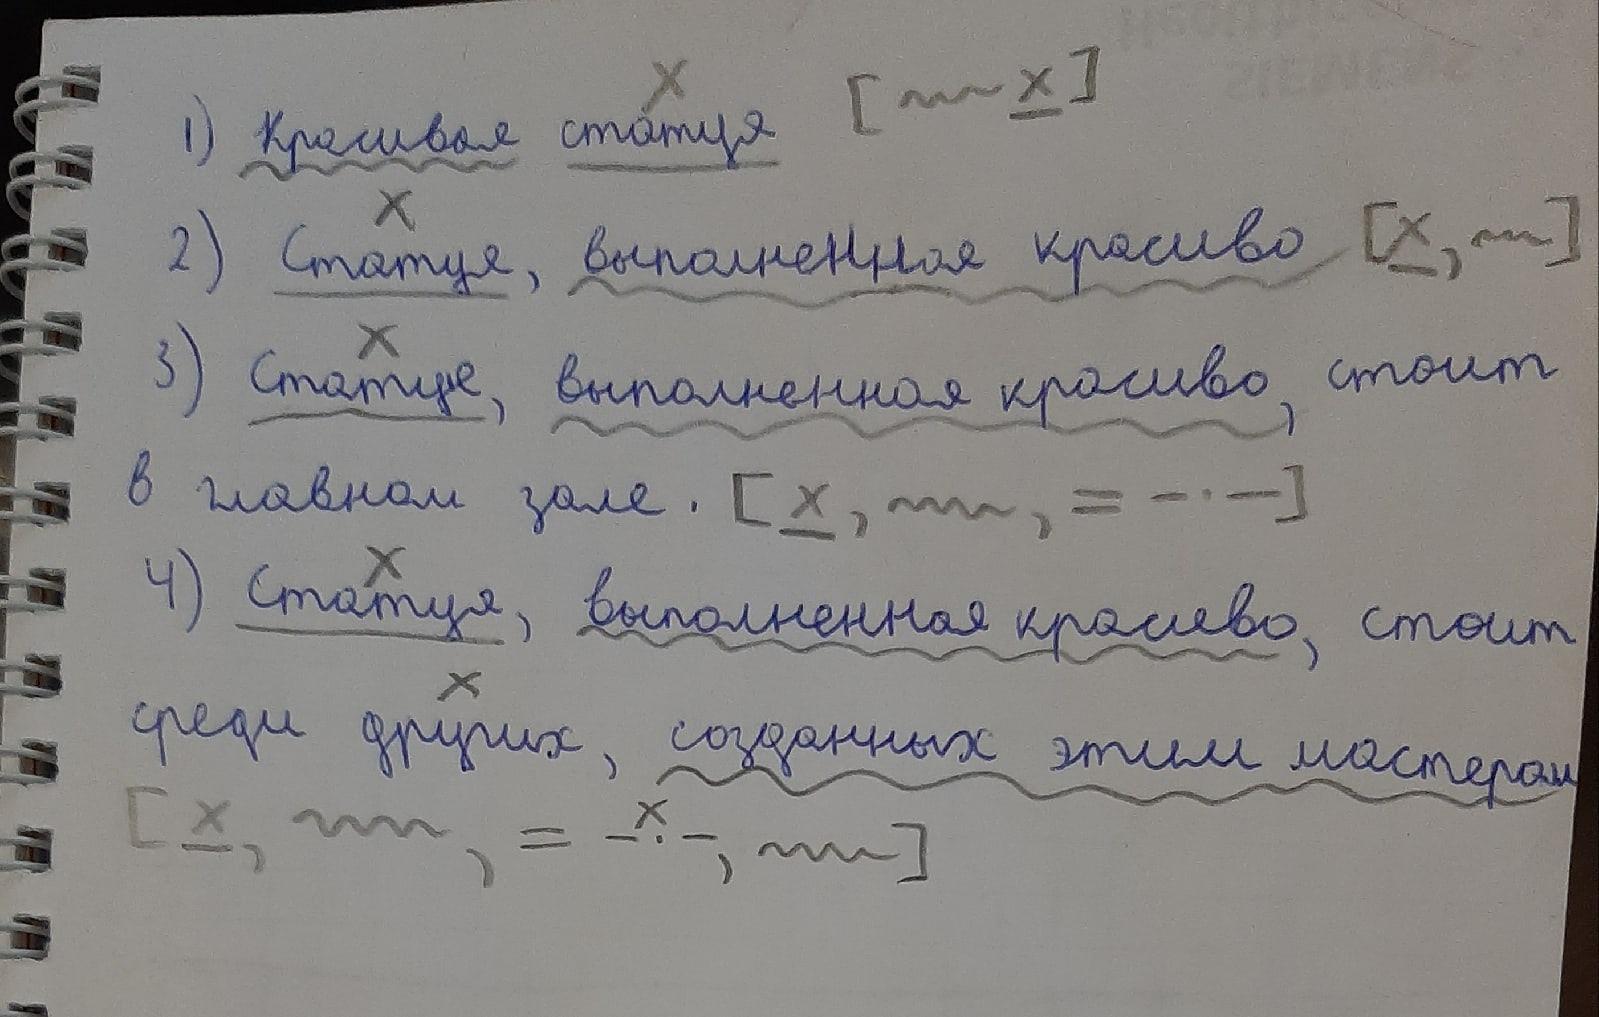 1) Красивая статуя [~~~ х]
2) Статуя, выполненная красиво [х, ~~~]
3) Статуе, выполненная красиво, стоит
в главном зале. [х, ~~~, = –·–]
4) Статуя, выполненная красиво, стоит
среди других, созданных этим мастером
[х, ~~~, = –·–, ~~~]